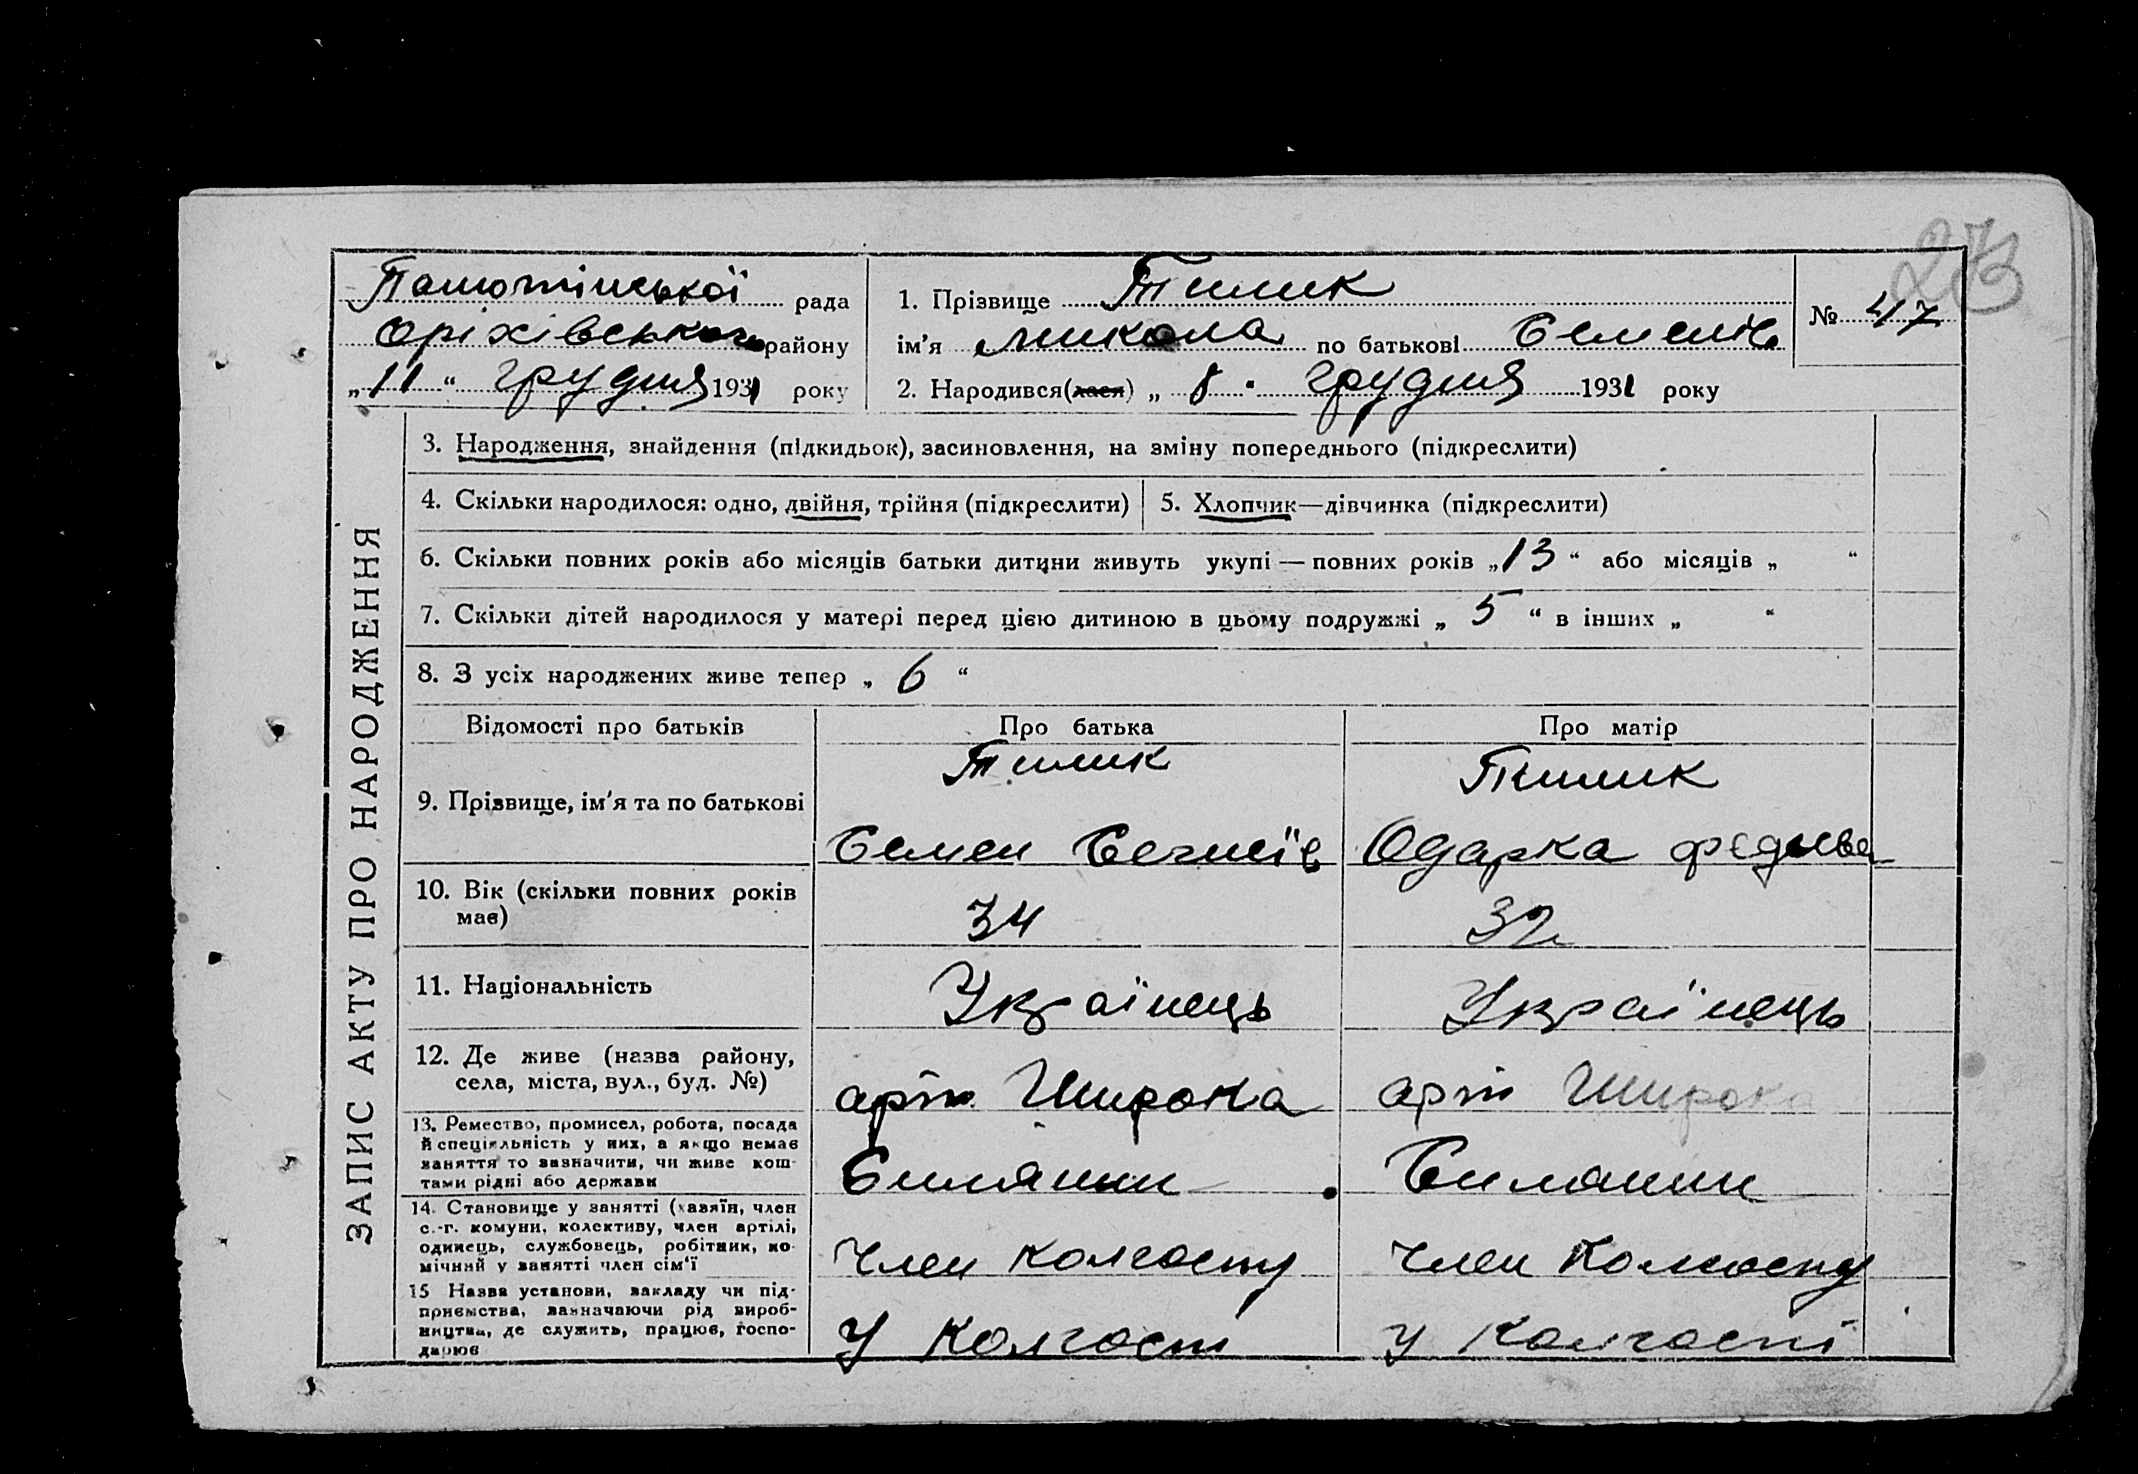 23
Панютінської рада
Оріхівського району
„11“ грудня 1931 року
1. Прізвище Тимик
ім'я Микола по батькові Семенів
2. Народився(лася) „8“ грудня 1931 року
№ 47
ЗАПИС АКТУ ПРО НАРОДЖЕННЯ
3. Народження, знайдення (підкидьок), засиновлення, на зміну попереднього (підкреслити)
4. Скільки народилося: одно, двійня, трійня (підкреслити)
5. Хлопчик—дівчинка (підкреслити)
6. Скільки повних років або місяців батьки дитини живуть укупі — повних років „13“ або місяців „ “
7. Скільки дітей народилося у матері перед цією дитиною в цьому подружжі „ 5 “ в інших „ “
8. З усіх народжених живе тепер „ 6 “
Відомості про батьків
Про батька
Про матір
9. Прізвище, ім'я та по батькові
Тимик
Семен
Тимик
Одарка
10. Вік (скільки повних років
має)
34
32
11. Національність
Українець
Українець
12. Де живе (назва району,
села, міста, вул., буд. №)
арт Широка
арт Широка
13. Ремество, промисел, робота, посада
й спеціяльність у них, а якщо немає
заняття то зазначити, чи живе кош-
тами рідні або держави
Силянин
Силянин
14. Становище у занятті (хазяїн, член
с.-г. комуни, колективу, член артілі,
одинець, службовець, робітник, по-
мічний у занятті член сім'ї
Член колгоспу
Член Колгоспу
15 Назва установи, закладу чи під-
приємства, зазначаючи рід вироб-
ництва, де служить, працює, госпо-
дарює
У Колгосп
У Колгоспі